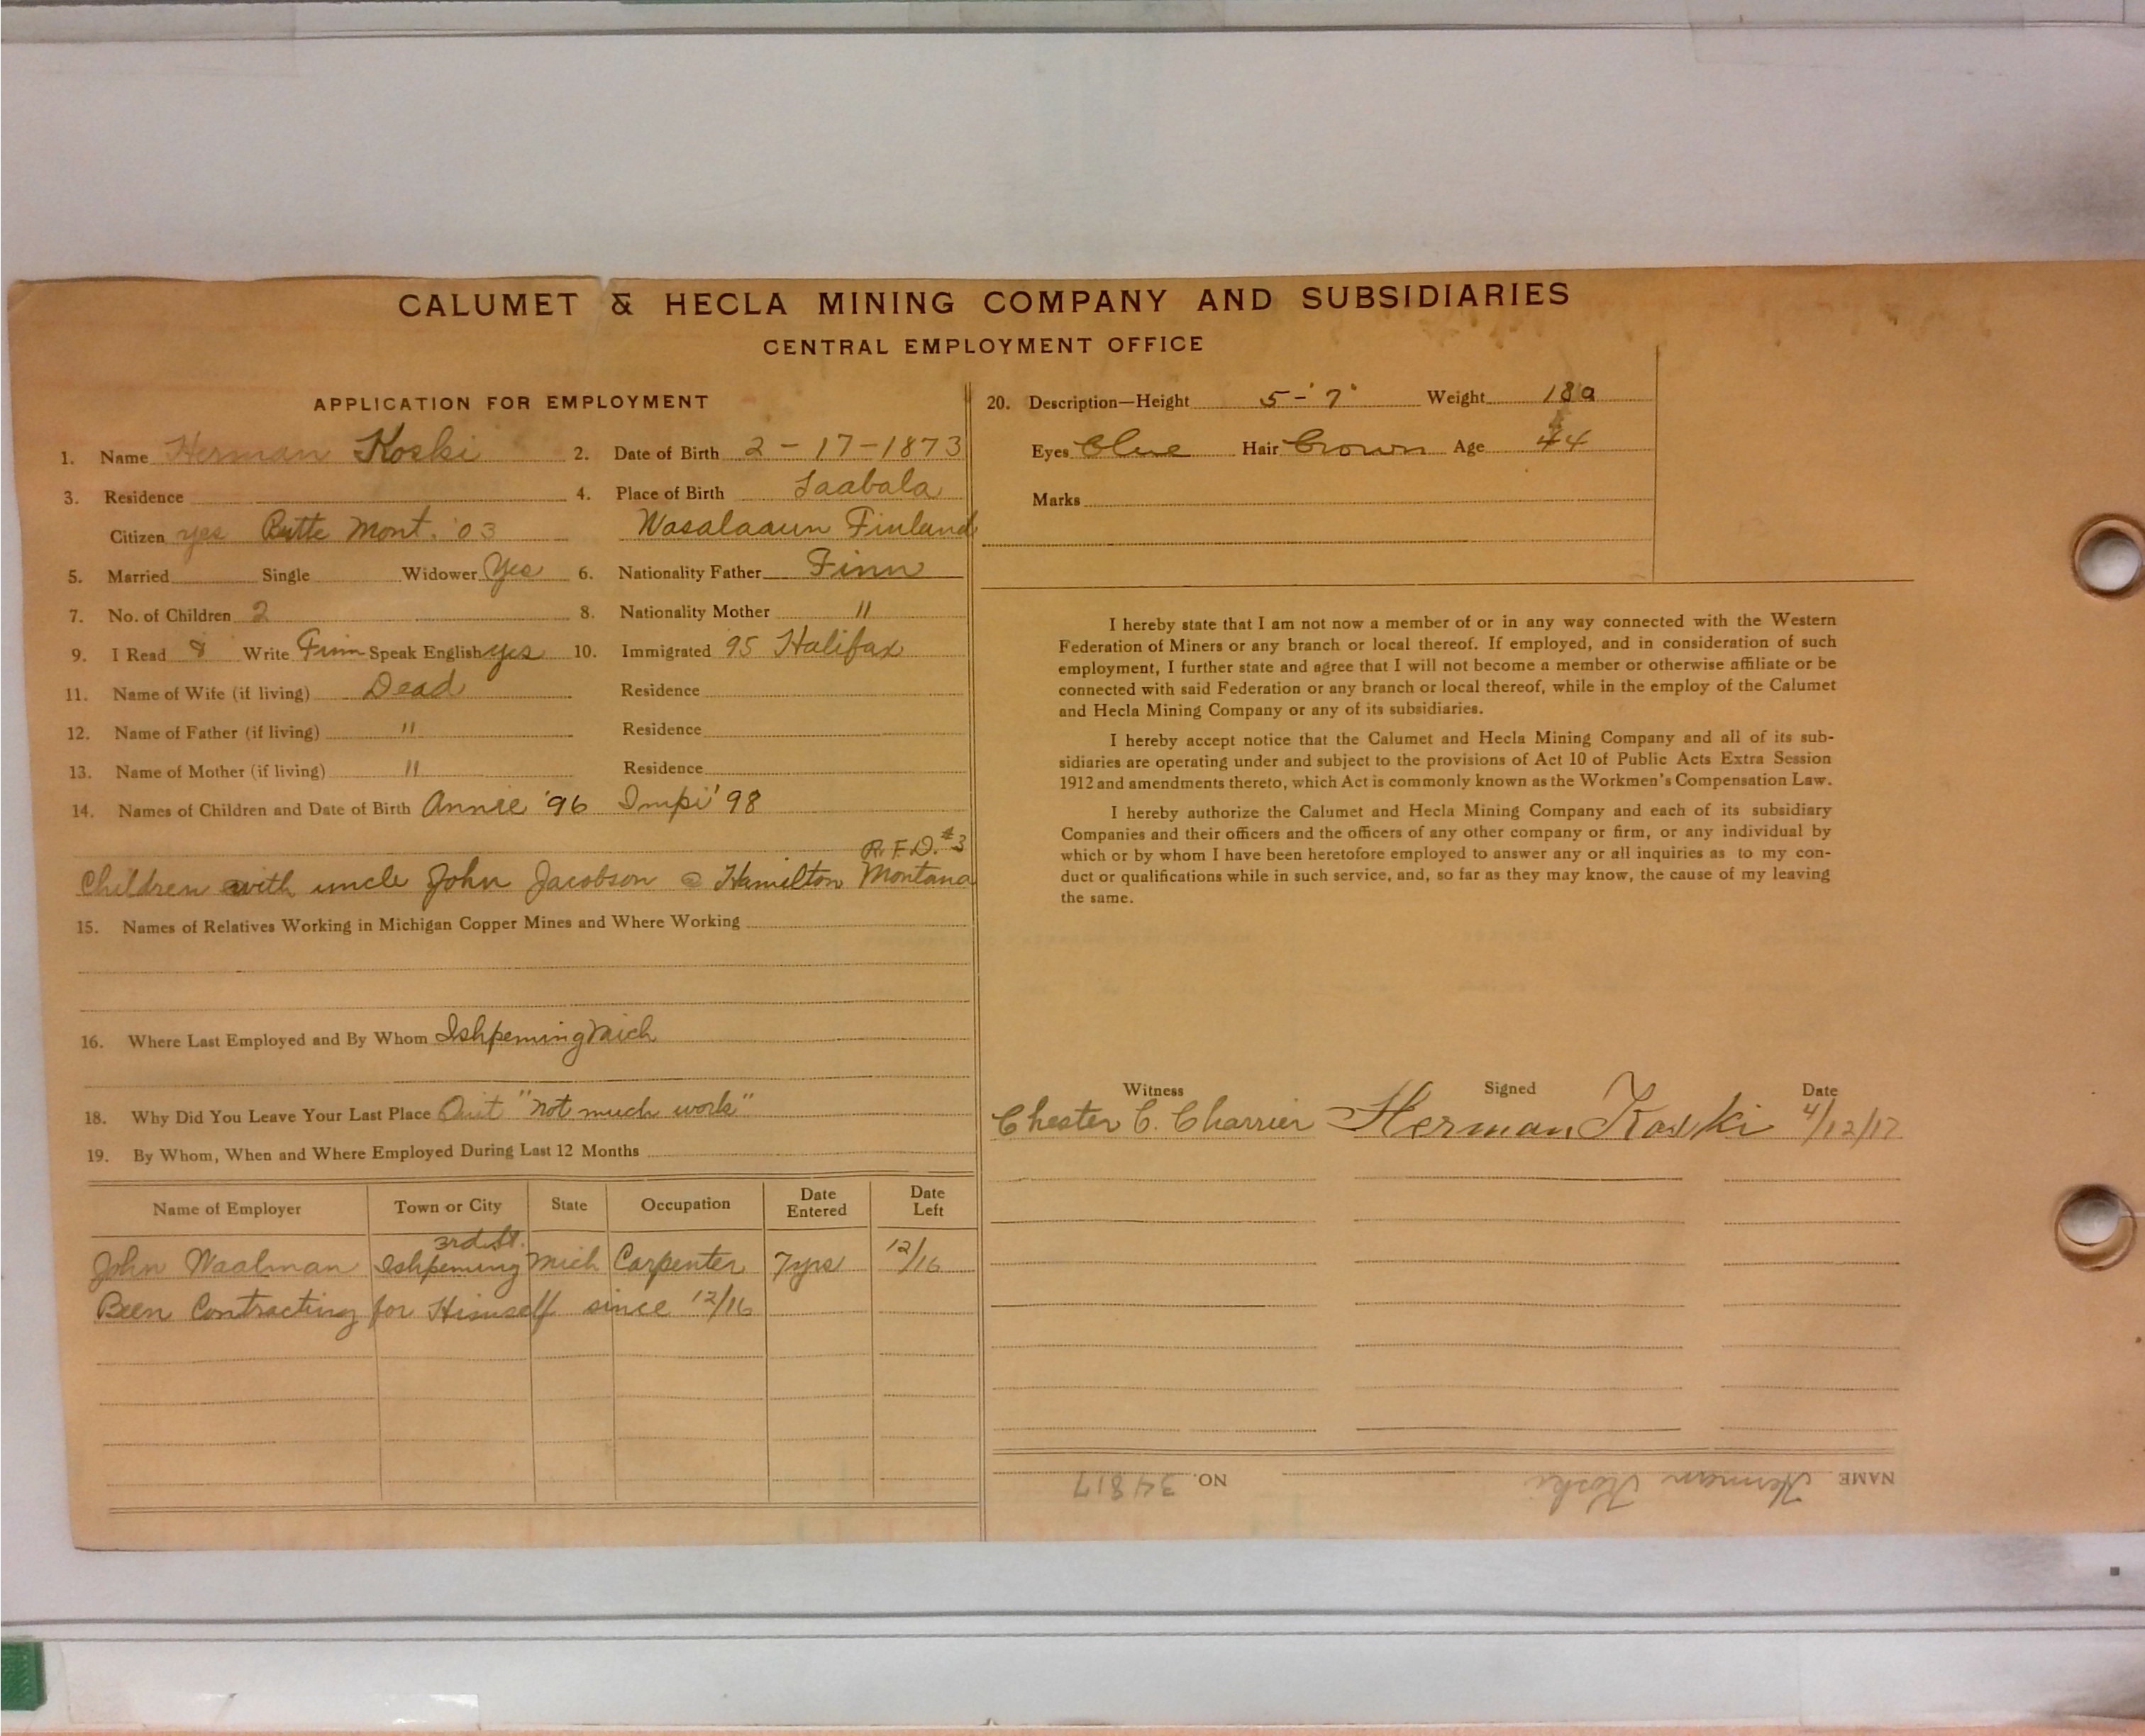 CALUMET & HECLA MINING COMPANY AND SUBSIDIARIES
CENTRAL EMPLOYMENT OFFICE
APPLICATION FOR EMPLOYMENT
1. Name Herman Koski 2. Date of Birth 2 - 17 - 1873
3. Residence 4. Place of Birth Laabala
Citizen yes Butte Mont. '03 Wasalaaun Finland
5. Married Single Widower Yes 6. Nationality Father Finn
7. No. of Children 2 8. Nationality Mother "
9. I Read & Write Finn Speak English yes 10. Immigrated 95 Halifax
11. Name of Wife (if living) Dead Residence
12. Name of Father (if living) " Residence
13. Name of Mother (if living) " Residence
14. Names of Children and Date of Birth Annie '96 Impi '98
R.F.D. #3
Children with uncle John Jacobson @ Hamilton Montana
15. Names of Relatives Working in Michigan Copper Mines and Where Working
16. Where Last Employed and By Whom Ishpeming Mich
18. Why Did You Leave Your Last Place Quit "not much work"
19. By Whom, When and Where Employed During Last 12 Months
Name of Employer Town or City State Occupation Date Entered Date Left
3rd St.
John Waalman Ishpeming Mich Carpenter 7yrs 12/16
Been Contracting for Himself since 12/16
20. Description—Height 5-'7" Weight 189
Eyes Blue Hair Brown Age 44
Marks
I hereby state that I am not now a member of or in any way connected with the Western
Federation of Miners or any branch or local thereof. If employed, and in consideration of such
employment, I further state and agree that I will not become a member or otherwise affiliate or be
connected with said Federation or any branch or local thereof, while in the employ of the Calumet
and Hecla Mining Company or any of its subsidiaries.
I hereby accept notice that the Calumet and Hecla Mining Company and all of its sub-
sidiaries are operating under and subject to the provisions of Act 10 of Public Acts Extra Session
1912 and amendments thereto, which Act is commonly known as the Workmen's Compensation Law.
I hereby authorize the Calumet and Hecla Mining Company and each of its subsidiary
Companies and their officers and the officers of any other company or firm, or any individual by
which or by whom I have been heretofore employed to answer any or all inquiries as to my con-
duct or qualifications while in such service, and, so far as they may know, the cause of my leaving
the same.
Witness Signed Date
Chester C. Charrier Herman Koski 4/12/17
NAME Herman Koski NO. 34817